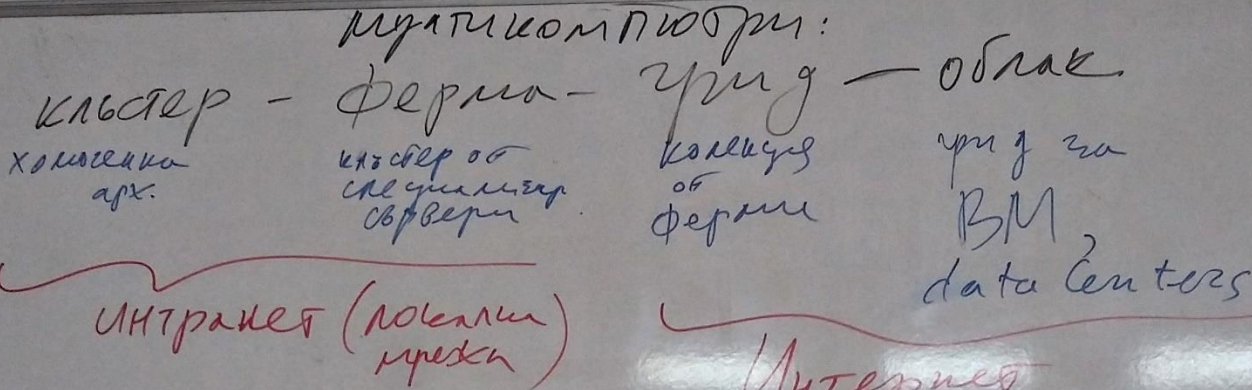 мултикомпютри:
клъстер - ферма - грид - облак
хомогенна
арх.
клъстер от
специализир
сървери
колекция
от
ферми
грид за
ВМ,
data centers
интранет (локална
мрежа)
Интернет